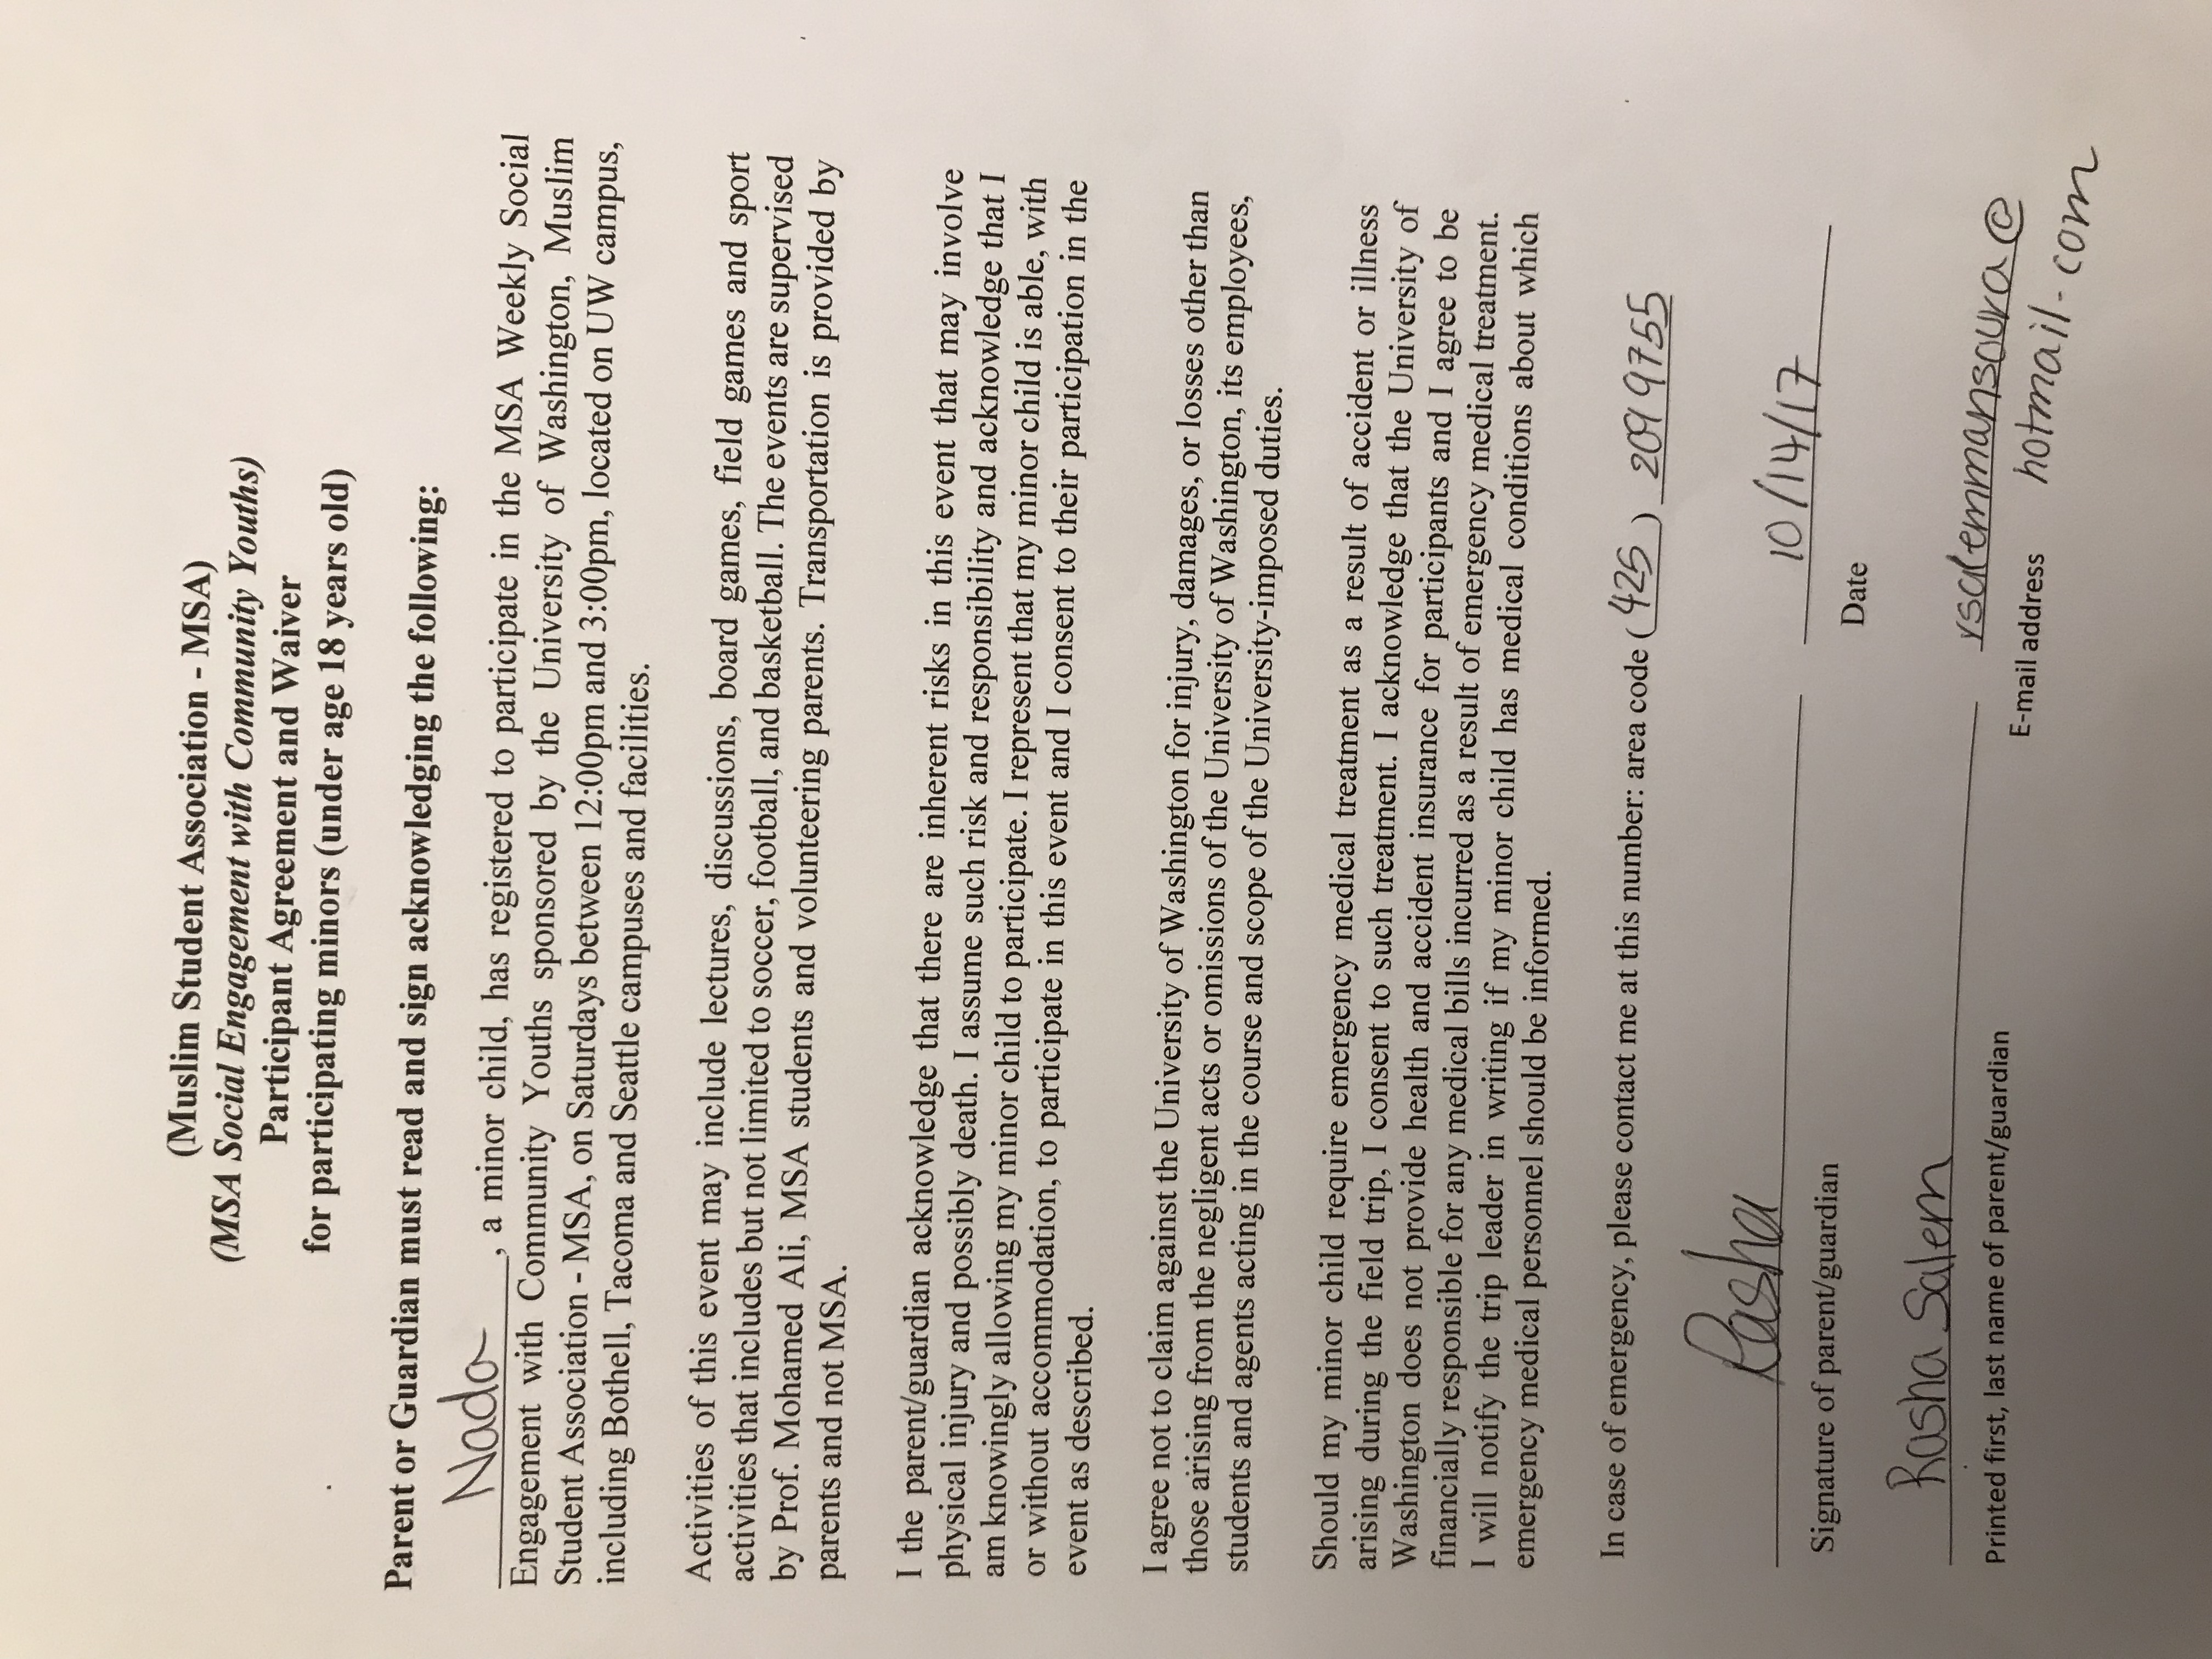 (Muslim Student Association - MSA)
(MSA Social Engagement with Community Youths)
Participant Agreement and Waiver
for participating minors (under age 18 years old)
Parent or Guardian must read and sign acknowledging the following:
Nada, a minor child, has registered to participate in the MSA Weekly Social
Engagement with Community Youths sponsored by the University of Washington, Muslim
Student Association - MSA, on Saturdays between 12:00pm and 3:00pm, located on UW campus,
including Bothell, Tacoma and Seattle campuses and facilities.
Activities of this event may include lectures, discussions, board games, field games and sport
activities that includes but not limited to soccer, football, and basketball. The events are supervised
by Prof. Mohamed Ali, MSA students and volunteering parents. Transportation is provided by
parents and not MSA.
I the parent/guardian acknowledge that there are inherent risks in this event that may involve
physical injury and possibly death. I assume such risk and responsibility and acknowledge that I
am knowingly allowing my minor child to participate. I represent that my minor child is able, with
or without accommodation, to participate in this event and I consent to their participation in the
event as described.
I agree not to claim against the University of Washington for injury, damages, or losses other than
those arising from the negligent acts or omissions of the University of Washington, its employees,
students and agents acting in the course and scope of the University-imposed duties.
Should my minor child require emergency medical treatment as a result of accident or illness
arising during the field trip, I consent to such treatment. I acknowledge that the University of
Washington does not provide health and accident insurance for participants and I agree to be
financially responsible for any medical bills incurred as a result of emergency medical treatment.
I will notify the trip leader in writing if my minor child has medical conditions about which
emergency medical personnel should be informed.
In case of emergency, please contact me at this number: area code (425) 209 9755
Rasha
10/14/17
Signature of parent/guardian
Date
Rasha Salem
rsalemmansoura@
Printed first, last name of parent/guardian
E-mail address hotmail.com